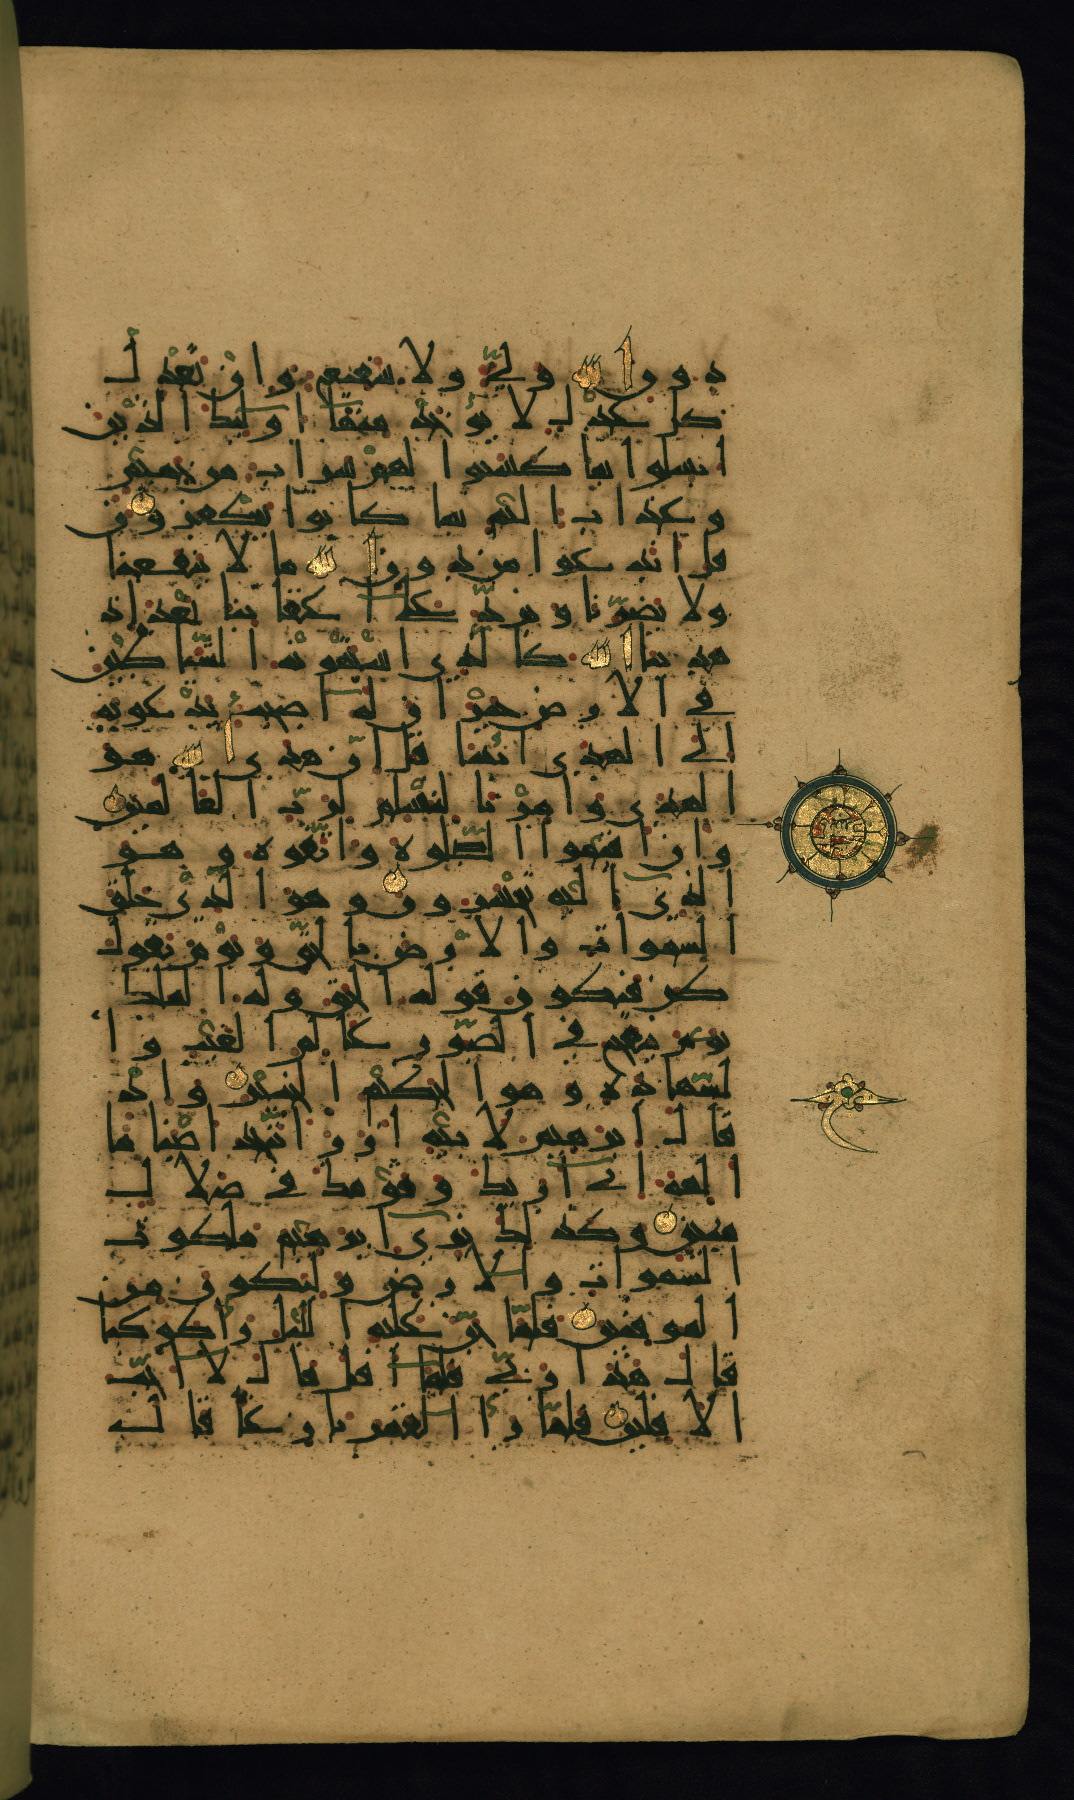 دون الله ولي ولا شفيع وان تعدل
كل عدل لا يؤخذ منها اولئك الذين
ابسلوا بما كسبوا لهم شراب من حميم
وعذاب اليم بما كانوا يكفرون
قل اندعوا من دون الله ما لا ينفعنا
ولا يضرنا ونرد على اعقابنا بعد اذ
هدينا الله كالذي استهوته الشياطين
في الارض حيران له اصحب يدعونه
الى الهدى ائتنا قل ان هدى الله هو
الهدى وامرنا لنسلم لرب العالمين
وان اقيموا الصلوة واتقوه وهو
الذي اليه تحشرون وهو الذي خلق
السموات والارض بالحق ويوم يقول
كن فيكون قوله الحق وله الملك
يوم ينفخ في الصور عالم الغيب وا
لشهادة وهو الحكيم الخبير واذ
قال ابرهيم لابيه ازر اتتخذ اصناما
الهة اني اريك وقومك في ضلال
مبين وكذلك نري ابرهيم ملكوت
السموات والارض وليكون من
الموقنين فلما جن عليه اليل را كوكبا
قال هذا ربي فلما افل قال لا احب
الافلين فلما را القمر بازغا قال